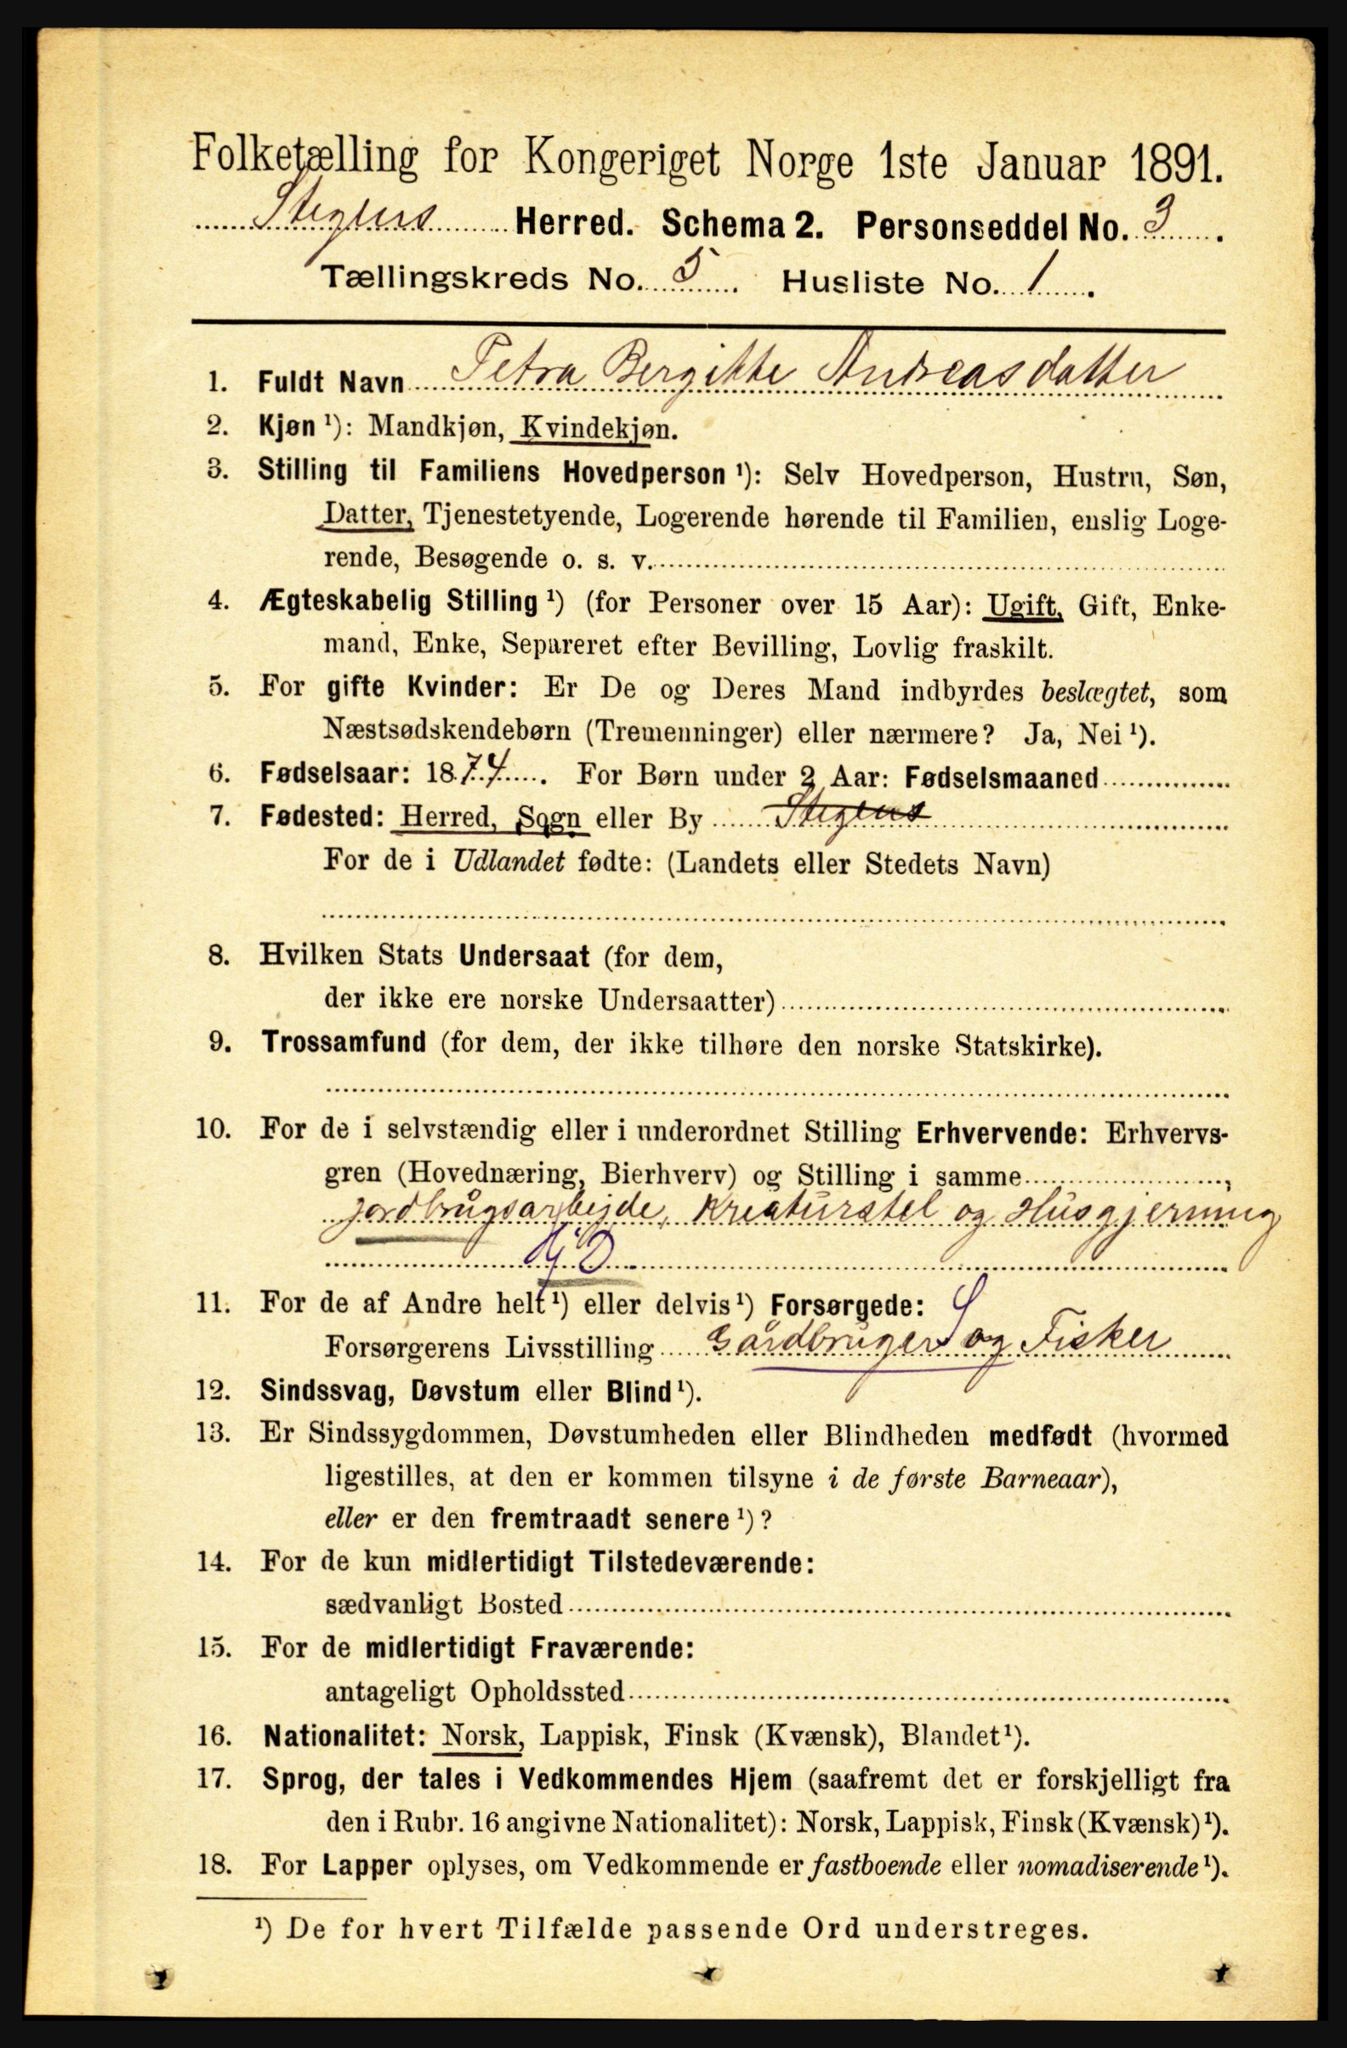 Folketælling for Kongeriget Norge 1ste Januar 1891.
Stegens Herred. Schema 2. Personseddel No. 3.
Tællingskreds No. 5. Husliste No. 1.
1. Fuldt Navn Petra Bergitte Andreasdatter
2. Kjøn ¹): Mandkjøn, Kvindekjøn.
3. Stilling til Familiens Hovedperson ¹): Selv Hovedperson, Hustru, Søn,
Datter, Tjenestetyende, Logerende hørende til Familien, enslig Loge-
rende, Besøgende o. s. v.
4. Ægteskabelig Stilling ¹) (for Personer over 15 Aar): Ugift, Gift, Enke-
mand, Enke, Separeret efter Bevilling, Lovlig fraskilt.
5. For gifte Kvinder: Er De og Deres Mand indbyrdes beslægtet, som
Næstsødskendebørn (Tremenninger) eller nærmere? Ja, Nei ¹).
6. Fødselsaar: 1874. For Børn under 2 Aar: Fødselsmaaned
7. Fødested: Herred, Sogn eller By Stegens
For de i Udlandet fødte: (Landets eller Stedets Navn)
8. Hvilken Stats Undersaat (for dem,
der ikke ere norske Undersaatter)
9. Trossamfund (for dem, der ikke tilhøre den norske Statskirke).
10. For de i selvstændig eller i underordnet Stilling Erhvervende: Erhvervs-
gren (Hovednæring, Bierhverv) og Stilling i samme
jordbrugsarbejde, Kreaturstel og Husgjerning
11. For de af Andre helt ¹) eller delvis ¹) Forsørgede:
Forsørgerens Livsstilling Gårdbruger og Fisker
12. Sindssvag, Døvstum eller Blind ¹).
13. Er Sindssygdommen, Døvstumheden eller Blindheden medfødt (hvormed
ligestilles, at den er kommen tilsyne i de første Barneaar),
eller er den fremtraadt senere ¹)?
14. For de kun midlertidigt Tilstedeværende:
sædvanligt Bosted
15. For de midlertidigt Fraværende:
antageligt Opholdssted
16. Nationalitet: Norsk, Lappisk, Finsk (Kvænsk), Blandet ¹).
17. Sprog, der tales i Vedkommendes Hjem (saafremt det er forskjelligt fra
den i Rubr. 16 angivne Nationalitet): Norsk, Lappisk, Finsk (Kvænsk) ¹).
18. For Lapper oplyses, om Vedkommende er fastboende eller nomadiserende ¹).
¹) De for hvert Tilfælde passende Ord understreges.